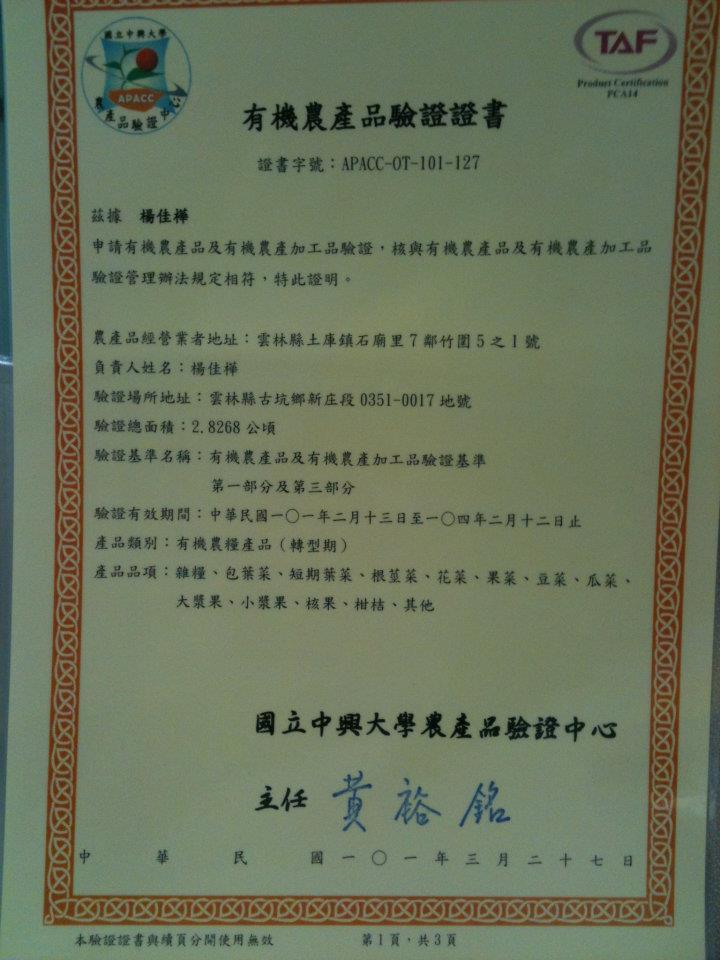 國立中興大學
APACC
農產品驗證中心
TAF
Product Certification
PCA14
有機農產品驗證證書
證書字號：APACC-OT-101-127
茲據 楊佳樺
申請有機農產品及有機農產加工品驗證，核與有機農產品及有機農產加工品
驗證管理辦法規定相符，特此證明。
農產品經營業者地址：雲林縣土庫鎮石廟里7鄰竹圍5之1號
負責人姓名：楊佳樺
驗證場所地址：雲林縣古坑鄉新庄段0351-0017地號
驗證總面積：2.8268公頃
驗證基準名稱：有機農產品及有機農產加工品驗證基準
第一部分及第三部分
驗證有效期間：中華民國一〇一年二月十三日至一〇四年二月十二日止
產品類別：有機農糧產品（轉型期）
產品品項：雜糧、包葉菜、短期葉菜、根莖菜、花菜、果菜、豆菜、瓜菜、
大漿果、小漿果、核果、柑桔、其他
國立中興大學農產品驗證中心
主任 黃裕銘
中華民國一〇一年三月二十七日
本驗證證書與續頁分開使用無效 第1頁，共3頁